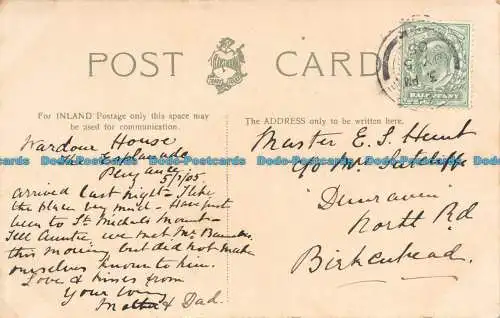 POST CARD
For INLAND Postage only this space may
be used for communication.
The ADDRESS only to be written here.
HALFPENNY
Wardour House
The Esplanade
Penzance
5/1/05
arrived last night - I like
the place very much - Have just
been to St Michaels Mount -
Tell Auntie we met Mr
this morning but did not make
ourselves known to him.
Love & kisses from
Your loving
Mother & Dad.
Master E. S. Hunt
c/o Mr Sutcliffe
North Rd
Birkenhead.
Dodo-Postcards.com